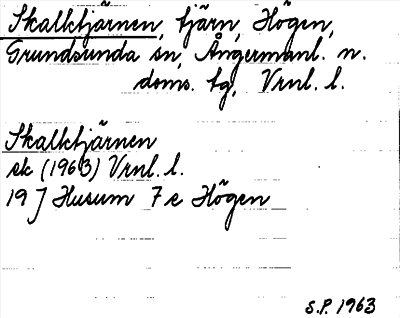 Skalktjärnen, tjärn, Högen,
Grundsunda sn, Ångermanl. n.
doms. tg, Vrnl. l.
Skalktjärnen
ek (1963) Vrnl. l.
19 J Husum 7 e Högen
S.P. 1963